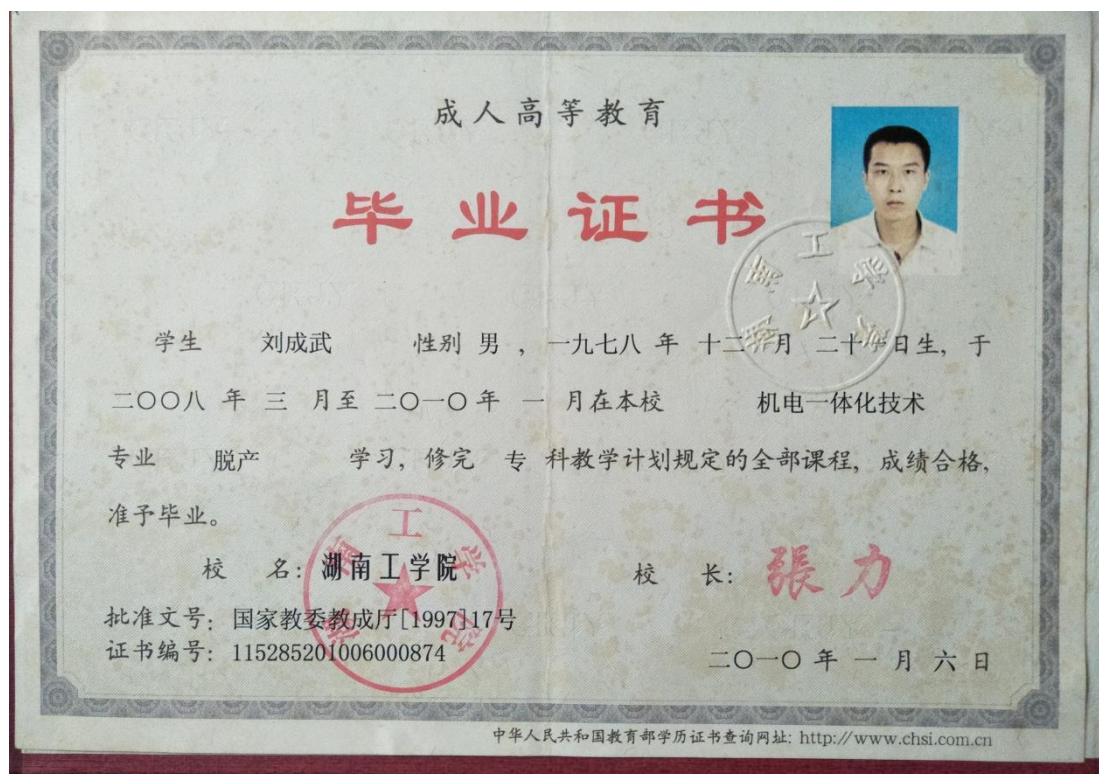 成人高等教育
毕业证书
学生 刘成武 性别 男 , 一九七八 年 十二 月 二十 日生, 于
二〇〇八 年 三 月至 二〇一〇 年 一 月在本校 机电一体化技术
专业 脱产 学习, 修完 专 科教学计划规定的全部课程, 成绩合格,
准予毕业。
校 名: 湖南工学院
校 长: 張力
批准文号: 国家教委教成厅[1997]17号
证书编号: 115285201006000874
二〇一〇 年 一 月 六 日
中华人民共和国教育部学历证书查询网址: http://www.chsi.com.cn
湖南工学院
湖南工学院